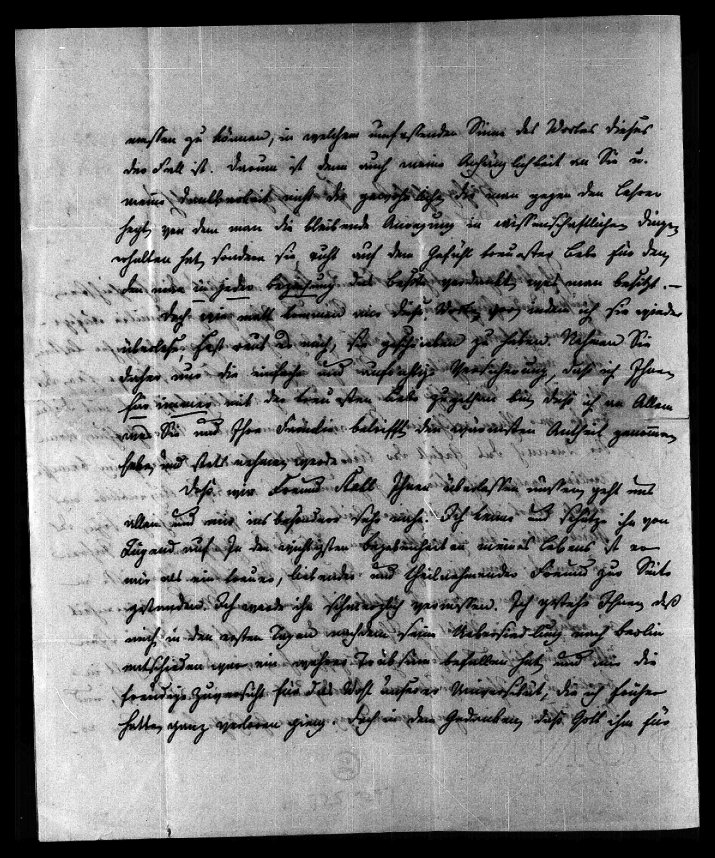 messen zu können, in welchem umfassenden Sinne des Wortes dieses
der Fall ist. Darum ist denn auch meine Anhänglichkeit an Sie u.
meine Dankbarkeit nicht die gewöhnliche, die man gegen den Lehrer
hegt, von dem man die bleibende Anregung in wissenschaftlichen Dingen
erhalten hat, sondern sie ruht auf dem Gefühl treuester Liebe für den,
dem man in jeder Beziehung das Beste verdankt, was man besitzt. —
Doch wie kalt kommen mir diese Worte vor, indem ich sie wieder
überlese, fast reut es mich, sie geschrieben zu haben. Nehmen Sie
daher nur die einfache und aufrichtige Versicherung, daß ich Ihnen
für immer mit der treuesten Liebe zugethan bin, daß ich an Allem
was Sie und Ihre Familie betrifft, den wärmsten Antheil genommen
habe und stets nehmen werde.
Daß wir Freund Ihnen überlassen müssen, geht uns
allen und mir insbesondere sehr nahe. Ich kenne und schätze ihn von
Jugend auf. In den wichtigsten Begebenheiten meines Lebens ist er
mir als ein treuer, liebender und theilnehmender Freund zur Seite
gestanden. Ich werde ihn schmerzlich vermissen. Ich gestehe Ihnen daß
mich in den ersten Tagen nachdem seine Uebersiedlung nach Berlin
entschieden war, ein wahres Trübsinn befallen hat, und mir die
freudige Zuversicht für das Wohl unserer Universität, die ich früher
hatte, ganz verloren gieng. Doch in dem Gedanken, daß Gott ihm für